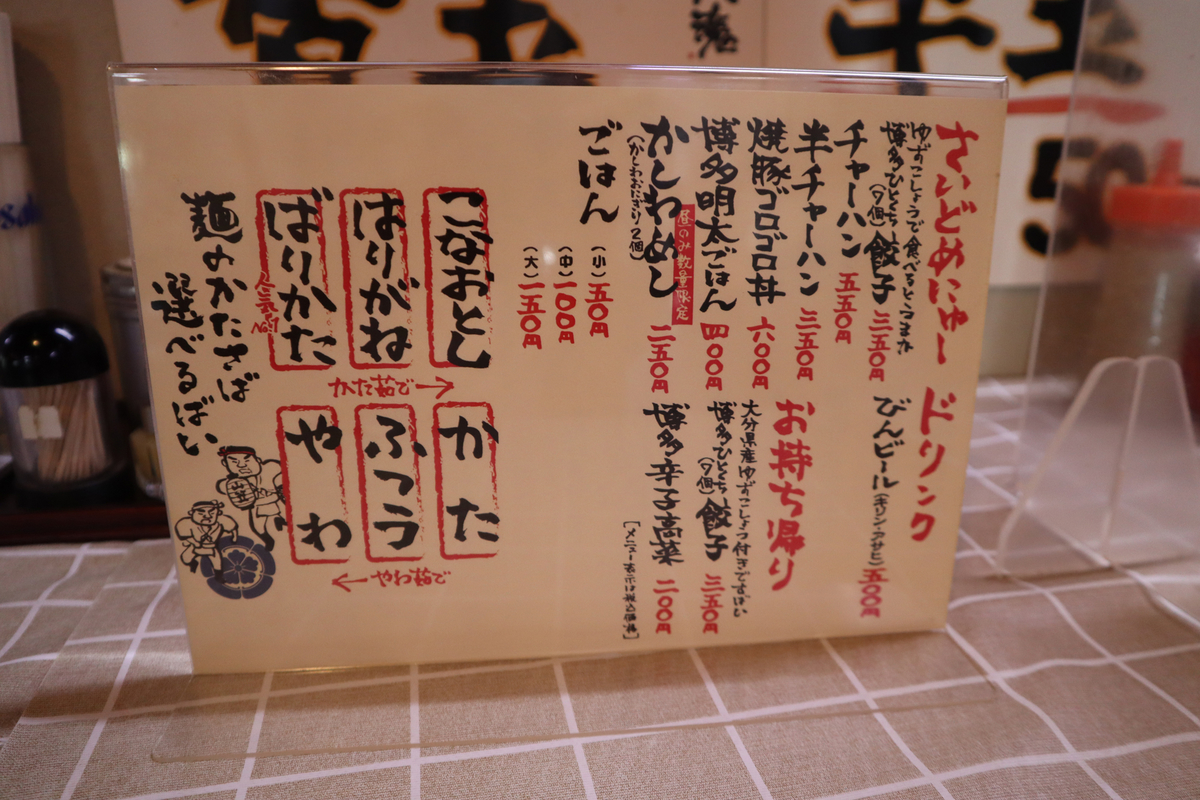 さいどめにゅー
ゆずこしょうで食べるとうまか
博多ひとくち餃子
(9個)
三五〇円
チャーハン 五五〇円
半チャーハン 三五〇円
焼豚ゴロゴロ丼 六〇〇円
博多明太ごはん 四〇〇円
昼のみ数量限定
かしわめし 二五〇円
(かしわおにぎり2個)
ごはん
(小)五〇円
(中)一〇〇円
(大)一五〇円
ドリンク
びんビール(キリン・アサヒ) 五〇〇円
お持ち帰り
大分県産ゆずこしょう付きですばい
博多ひとくち餃子
(9個)
三五〇円
博多辛子高菜 二〇〇円
[メニュー表示は税込価格]
こなおとし
はりがね
ばりかた
人気No.1
かた茹で→
かた
ふつう
やわ
←やわ茹で
麺のかたさば
選べるばい